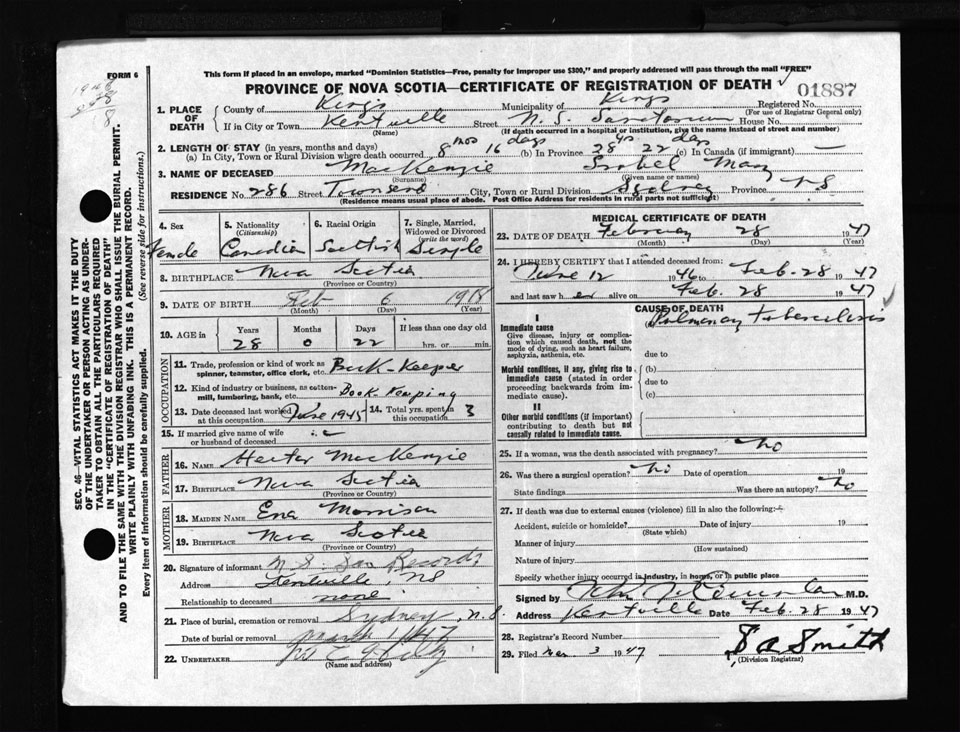 FORM 6
1946
This form if placed in an envelope, marked "Dominion Statistics—Free, penalty for improper use $300," and properly addressed will pass through the mail "FREE"
PROVINCE OF NOVA SCOTIA—CERTIFICATE OF REGISTRATION OF DEATH
01887
SEC. 46—VITAL STATISTICS ACT MAKES IT THE DUTY
OF THE UNDERTAKER OR PERSON ACTING AS UNDER-
TAKER TO OBTAIN ALL THE PARTICULARS REQUIRED
IN THE "CERTIFICATE OF REGISTRATION OF DEATH"
AND TO FILE THE SAME WITH THE DIVISION REGISTRAR WHO SHALL ISSUE THE BURIAL PERMIT.
WRITE PLAINLY WITH UNFADING INK. THIS IS A PERMANENT RECORD.
Every item of information should be carefully supplied. (See reverse side for instructions.)
1. PLACE OF DEATH County of Kings Municipality of Kings Registered No.
(For use of Registrar General only)
If in City or Town Kentville Street N. S. Sanatorium House No.
(Name) (If death occurred in a hospital or institution, give the name instead of street and number)
2. LENGTH OF STAY (in years, months and days)
(a) In City, Town or Rural Division where death occurred 8 mos 16 days (b) In Province 28 yrs 22 days (c) In Canada (if immigrant) —
3. NAME OF DECEASED MacKenzie Isobel Mary
(Surname) (Given name or names)
RESIDENCE No. 286 Street Townsend City, Town or Rural Division Sydney Province N S
(Residence means usual place of abode. Post Office Address for residents in rural parts not sufficient)
4. Sex Female
5. Nationality (Citizenship) Canadian
6. Racial Origin Scottish
7. Single, Married, Widowed or Divorced (write the word) Single
8. BIRTHPLACE Nova Scotia
(Province or Country)
9. DATE OF BIRTH Feb 6 1918
(Month) (Day) (Year)
10. AGE in Years Months Days If less than one day old
28 0 22 hrs. or min.
OCCUPATION
11. Trade, profession or kind of work as spinner, teamster, office clerk, etc. Book-Keeper
12. Kind of industry or business, as cotton-mill, lumbering, bank, etc. Book Keeping
13. Date deceased last worked at this occupation June 1945 14. Total yrs. spent in this occupation 3
15. If married give name of wife or husband of deceased
FATHER
16. NAME Hector MacKenzie
17. BIRTHPLACE Nova Scotia
(Province or Country)
MOTHER
18. MAIDEN NAME Ena Morrison
19. BIRTHPLACE Nova Scotia
(Province or Country)
20. Signature of informant N. S. San Records
Address Kentville, NS
Relationship to deceased none
21. Place of burial, cremation or removal Sydney, N.S.
Date of burial or removal March 1 1947
22. UNDERTAKER
(Name and address)
MEDICAL CERTIFICATE OF DEATH
23. DATE OF DEATH February 28 1947
(Month) (Day) (Year)
24. I HEREBY CERTIFY that I attended deceased from:
June 12 1946 to Feb. 28 1947
and last saw her alive on Feb. 28 1947
CAUSE OF DEATH
I
Immediate cause
Pulmonary tuberculosis
Give disease, injury or complication which caused death, not the mode of dying, such as heart failure, asphyxia, asthenia, etc.
due to
Morbid conditions, if any, giving rise to immediate cause (stated in order proceeding backwards from immediate cause).
(b)
due to
(c)
II
Other morbid conditions (if important) contributing to death but not causally related to immediate cause.
25. If a woman, was the death associated with pregnancy? no
26. Was there a surgical operation? no Date of operation 19
State findings Was there an autopsy? no
27. If death was due to external causes (violence) fill in also the following:
Accident, suicide or homicide? Date of injury 19
(State which)
Manner of injury
(How sustained)
Nature of injury
Specify whether injury occurred in industry, in home, or in public place
Signed by M.D.
Address Kentville Date Feb. 28 1947
28. Registrar's Record Number
29. Filed Mar 3 1947 Smith
(Division Registrar)